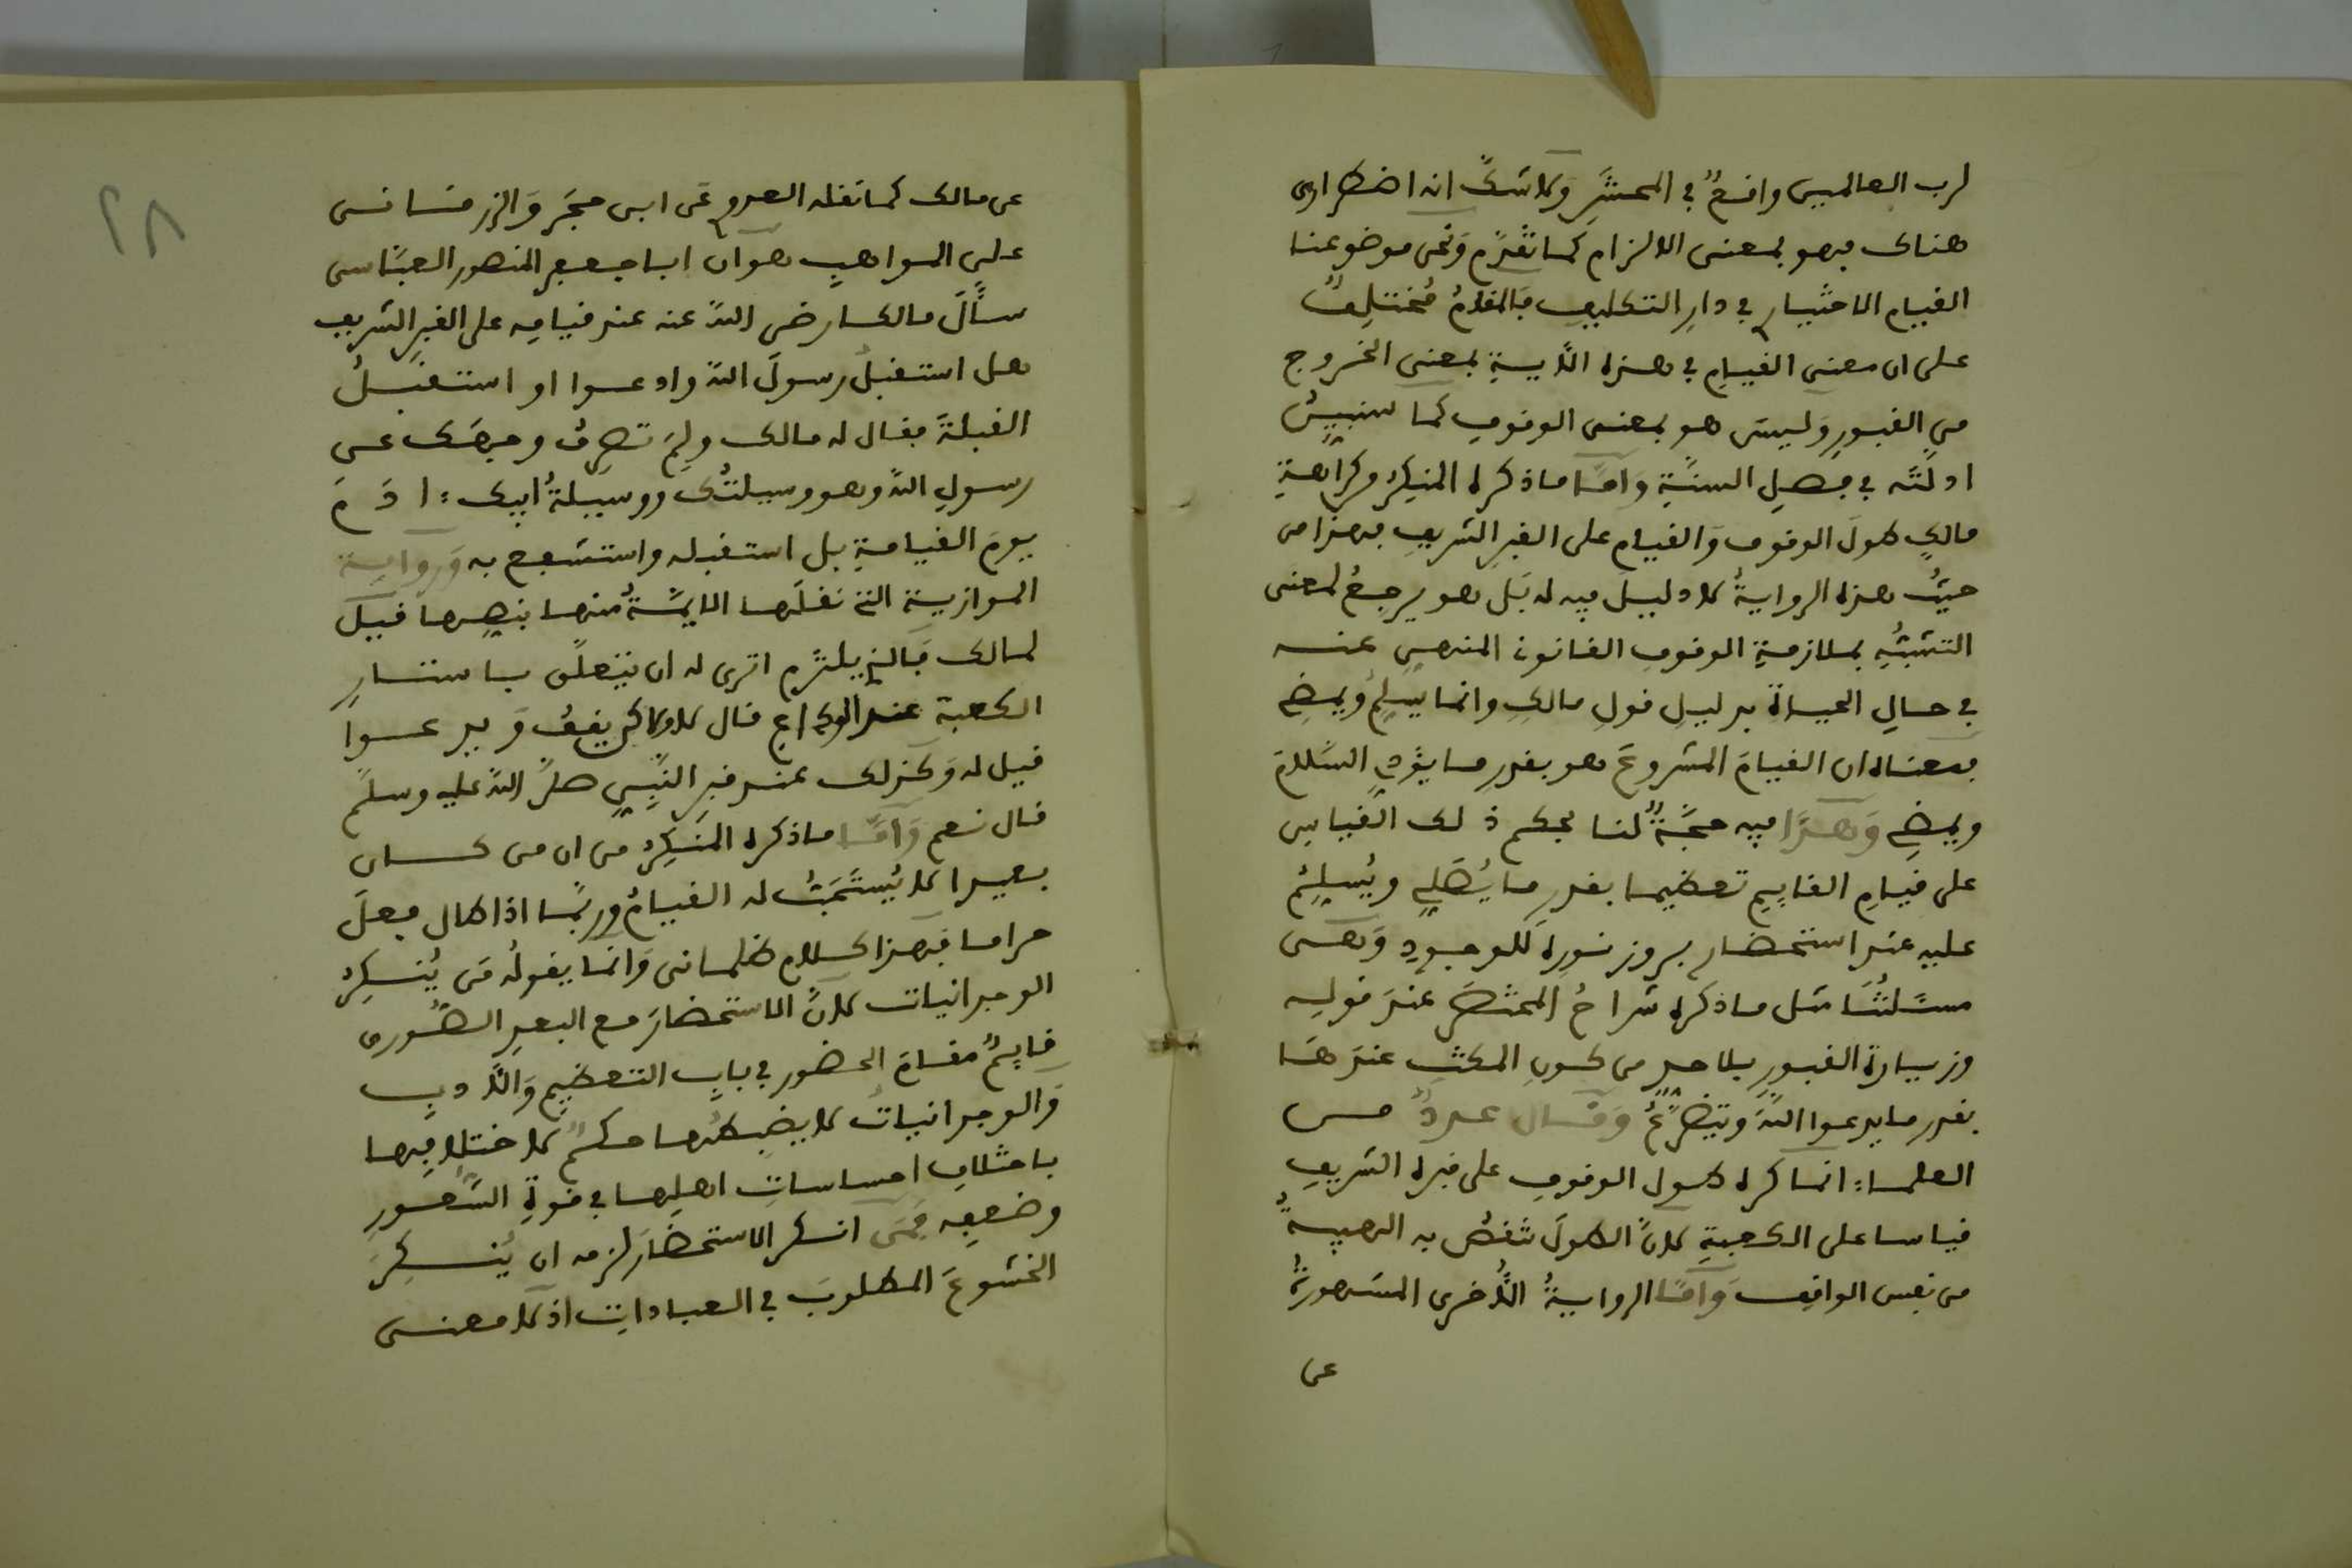 لرب العالمين واقعٌ في المحشَرِ وَلا شكَّ انه اضطراري
هناك فهو بمعنى الالزام كما تقدَّم وَنحن موضوعنا
القيام الاختيارى في دارِ التكليف فَالمقامُ مُختلِفٌ
على ان معنى القيامِ في هذه الأيةِ بمعنى الخروج
من القبورِ وَليسَ هو بمعنى الوقوفِ كما سنبينُ
ادلتَّه في فصلِ السنَّةِ وَامَّا ما ذكره المنكِرُ من كراهةِ
مالكٍ طولَ الوقوف وَالقيامِ على القبرِ الشريفِ فهذا من
حيثُ هذه الروايةُ لا دليلَ فيه له بَل هو يرجعُ لمعنى
التشبُّهِ بملازمةِ الوقوفِ القانونى المنهى عنه
في حالِ الحياة بدليلِ قولِ مالكٍ وانما يسلِّمُ ويمضي
فمعناه ان القيامَ المشروعَ هو بقدرِ ما يؤدي السَّلامَ
ويمضي وَهذَا فيه حجَّةٌ لنا بحكم ذلك القياس
على قيامِ القايمِ تعظيما بقدرِ ما يُصَلي ويُسلِّمُ
عليه عند استحضارِ بروز نورِه للوجودِ وَهى
مسئلتُنا مثل ما ذكره شراحُ المختصَرِ عندَ قوله
وزيارة القبورِ بلا حدٍ من كونِ المكثِ عندَها
بقدر ما يدعوا اللهَ وَيتضرَّعُ وَقال عددٌ من
العلماء انما كره طول الوقوفِ على قبره الشريفِ
قياسا على الكعبةِ لانَّ الطولَ تنقصُ به الهيبةُ
من نفس الواقف وَامَّا الروايةُ الأُخرى المشهورةُ
عن
عن مالك كما نقله العدوى عَن ابن حجَر وَالزرقانى
على المواهبِ هو ان ابا جعفر المنصور العبَّاسى
سأَلَ مالكا رضى اللهُ عنه عند قيامِه على القبرِ الشريف
هل استقبلُ رسولَ الله وادعوا او استقبلُ
القبلةَ فقال له مالك ولِمَ تصرِفُ وجهَك عن
رسولِ اللهِ وهو وسيلتُك ووسيلةُ ابيك ءادَمَ
يومَ القيامةِ بل استقبله واستشفع به وَرواية
الموازية التى نقلَها الايمَّةُ منها بنصِها قيل
لمالك فَالذى يلتزم اترى له ان يتعلَّق باستارِ
الكعبة عند الوداع قال لا ولاكن يقِفُ وَيدعوا
قيل له وَكذلك عند قبرِ النَّبيِ صلَّى اللهُ عليه وسلَّم
قال نعم وَامَّا ما ذكره المنكِرُ من ان من كان
بعيدا لا يُستَحَبُّ له القيامُ وَربَّما اذا طال فعلَ
حراما فَهذا كلام ظلمانى وَانما يقولُه مَن يُنكِرُ
الوجدانيات لانَّ الاستحضارَ مع البعدِ الصُّورى
قايمٌ مقامَ الحضور في بابِ التعظيمِ وَالأدبِ
وَالوجدانياتُ لا يضبطُها حكمٌ لاختلافِها
باختلافِ احساساتِ اهلِها في قوةِ الشعورِ
وضعفِه فَمَن انكر الاستحضارَ لزمه ان يُنكِرَ
الخشوعَ المطلوبَ في العباداتِ اذ لا معنى
٢٨